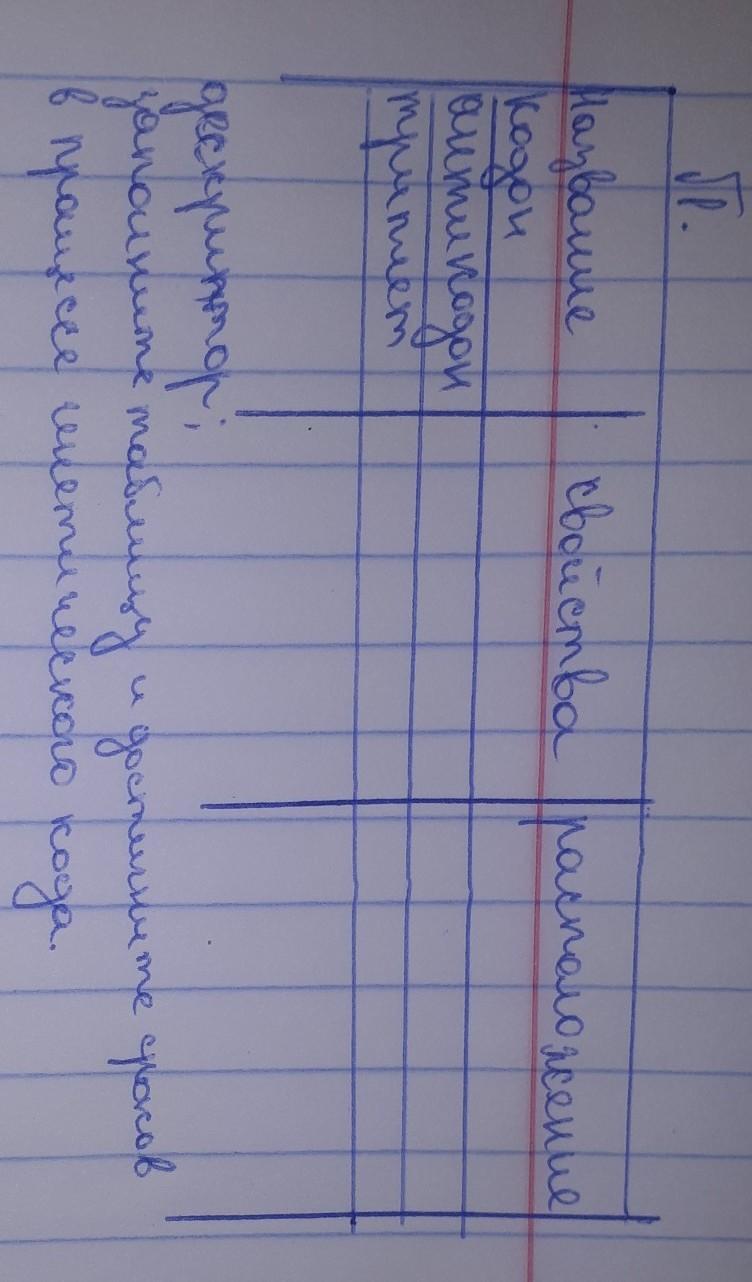 Гр.
Название свойства расположение
кодон
антикодон
триплет
дескриптор;
заполните таблицу и достигните сроков
в працессе генетического кода.